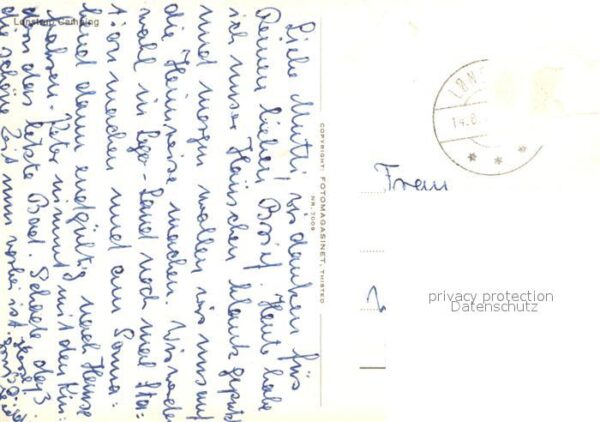 Lønstrup Camping
Liebe Mutti! wir danken für
Deinen lieben Brief. Heute habe
ich unser Häuschen blank geputzt
und morgen wollen wir uns auf
die Heimreise machen. Wir werden
wohl in Lego-Land noch mal Sta-
tion machen und am Sonna-
bend dann endgültig nach Hause
fahren. Peter nimmt mit den Kin-
dern das letzte Bad. Schade, daß
die schöne Zeit nun vorbei ist.
COPYRIGHT: FOTOMAGASINET, THISTED
NR. 7009
LØNS
14.8.
Frau
privacy protection
Datenschutz